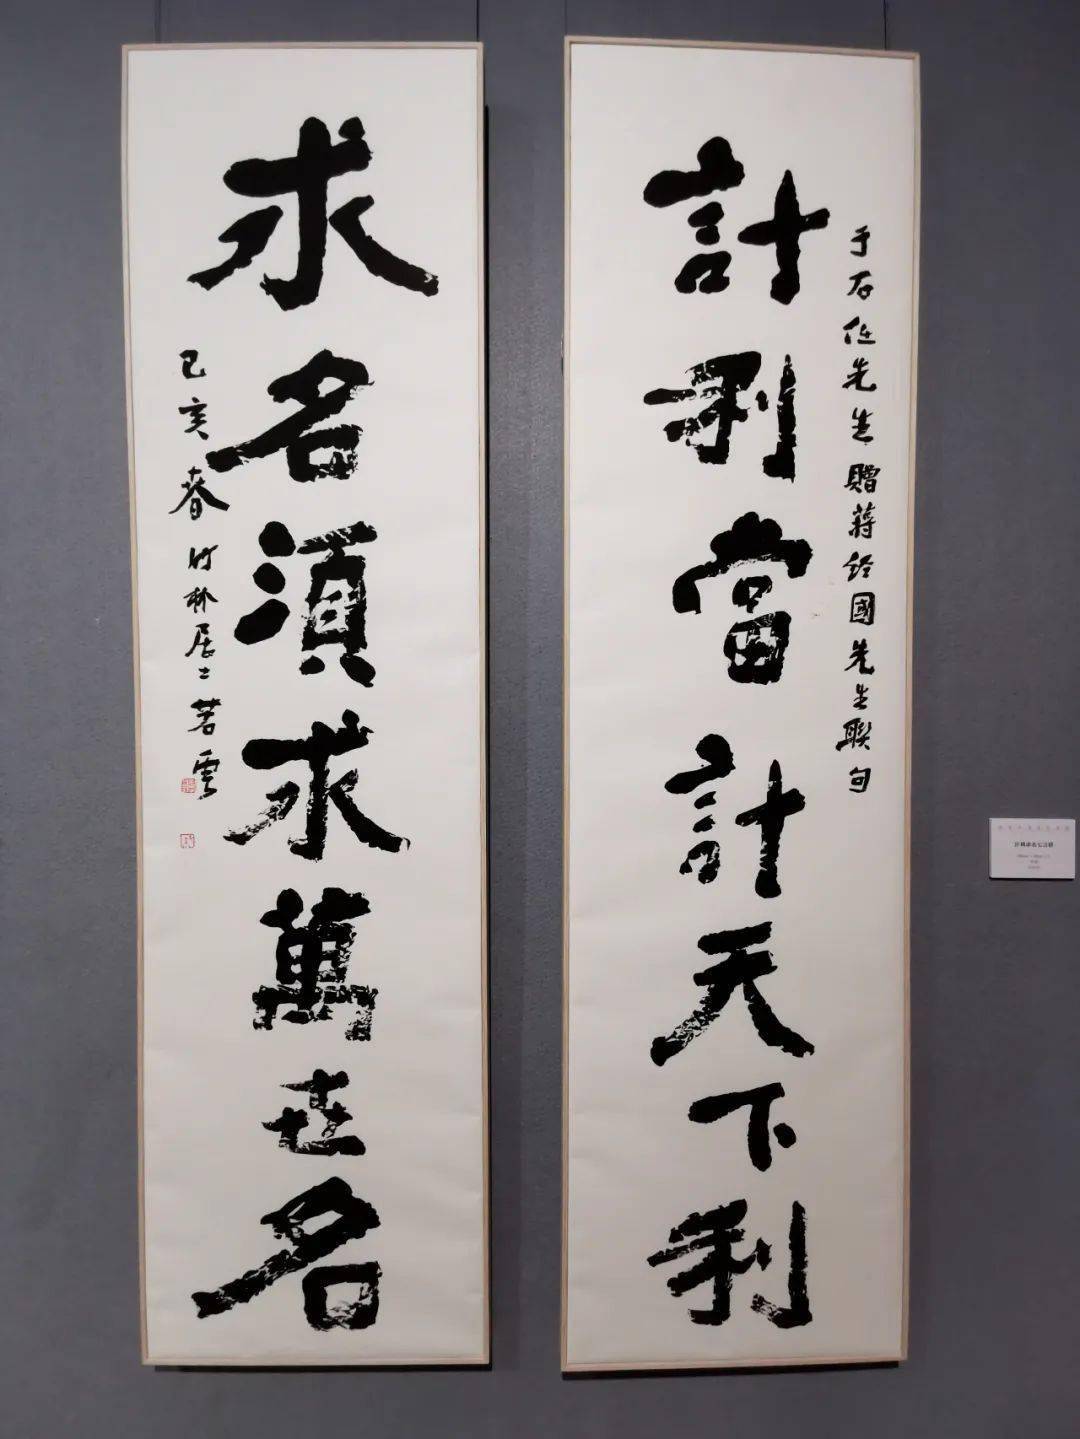 計利當計天下利
于右任先生贈蔣經國先生聯句
求名須求萬世名
己亥春竹林居士若雲